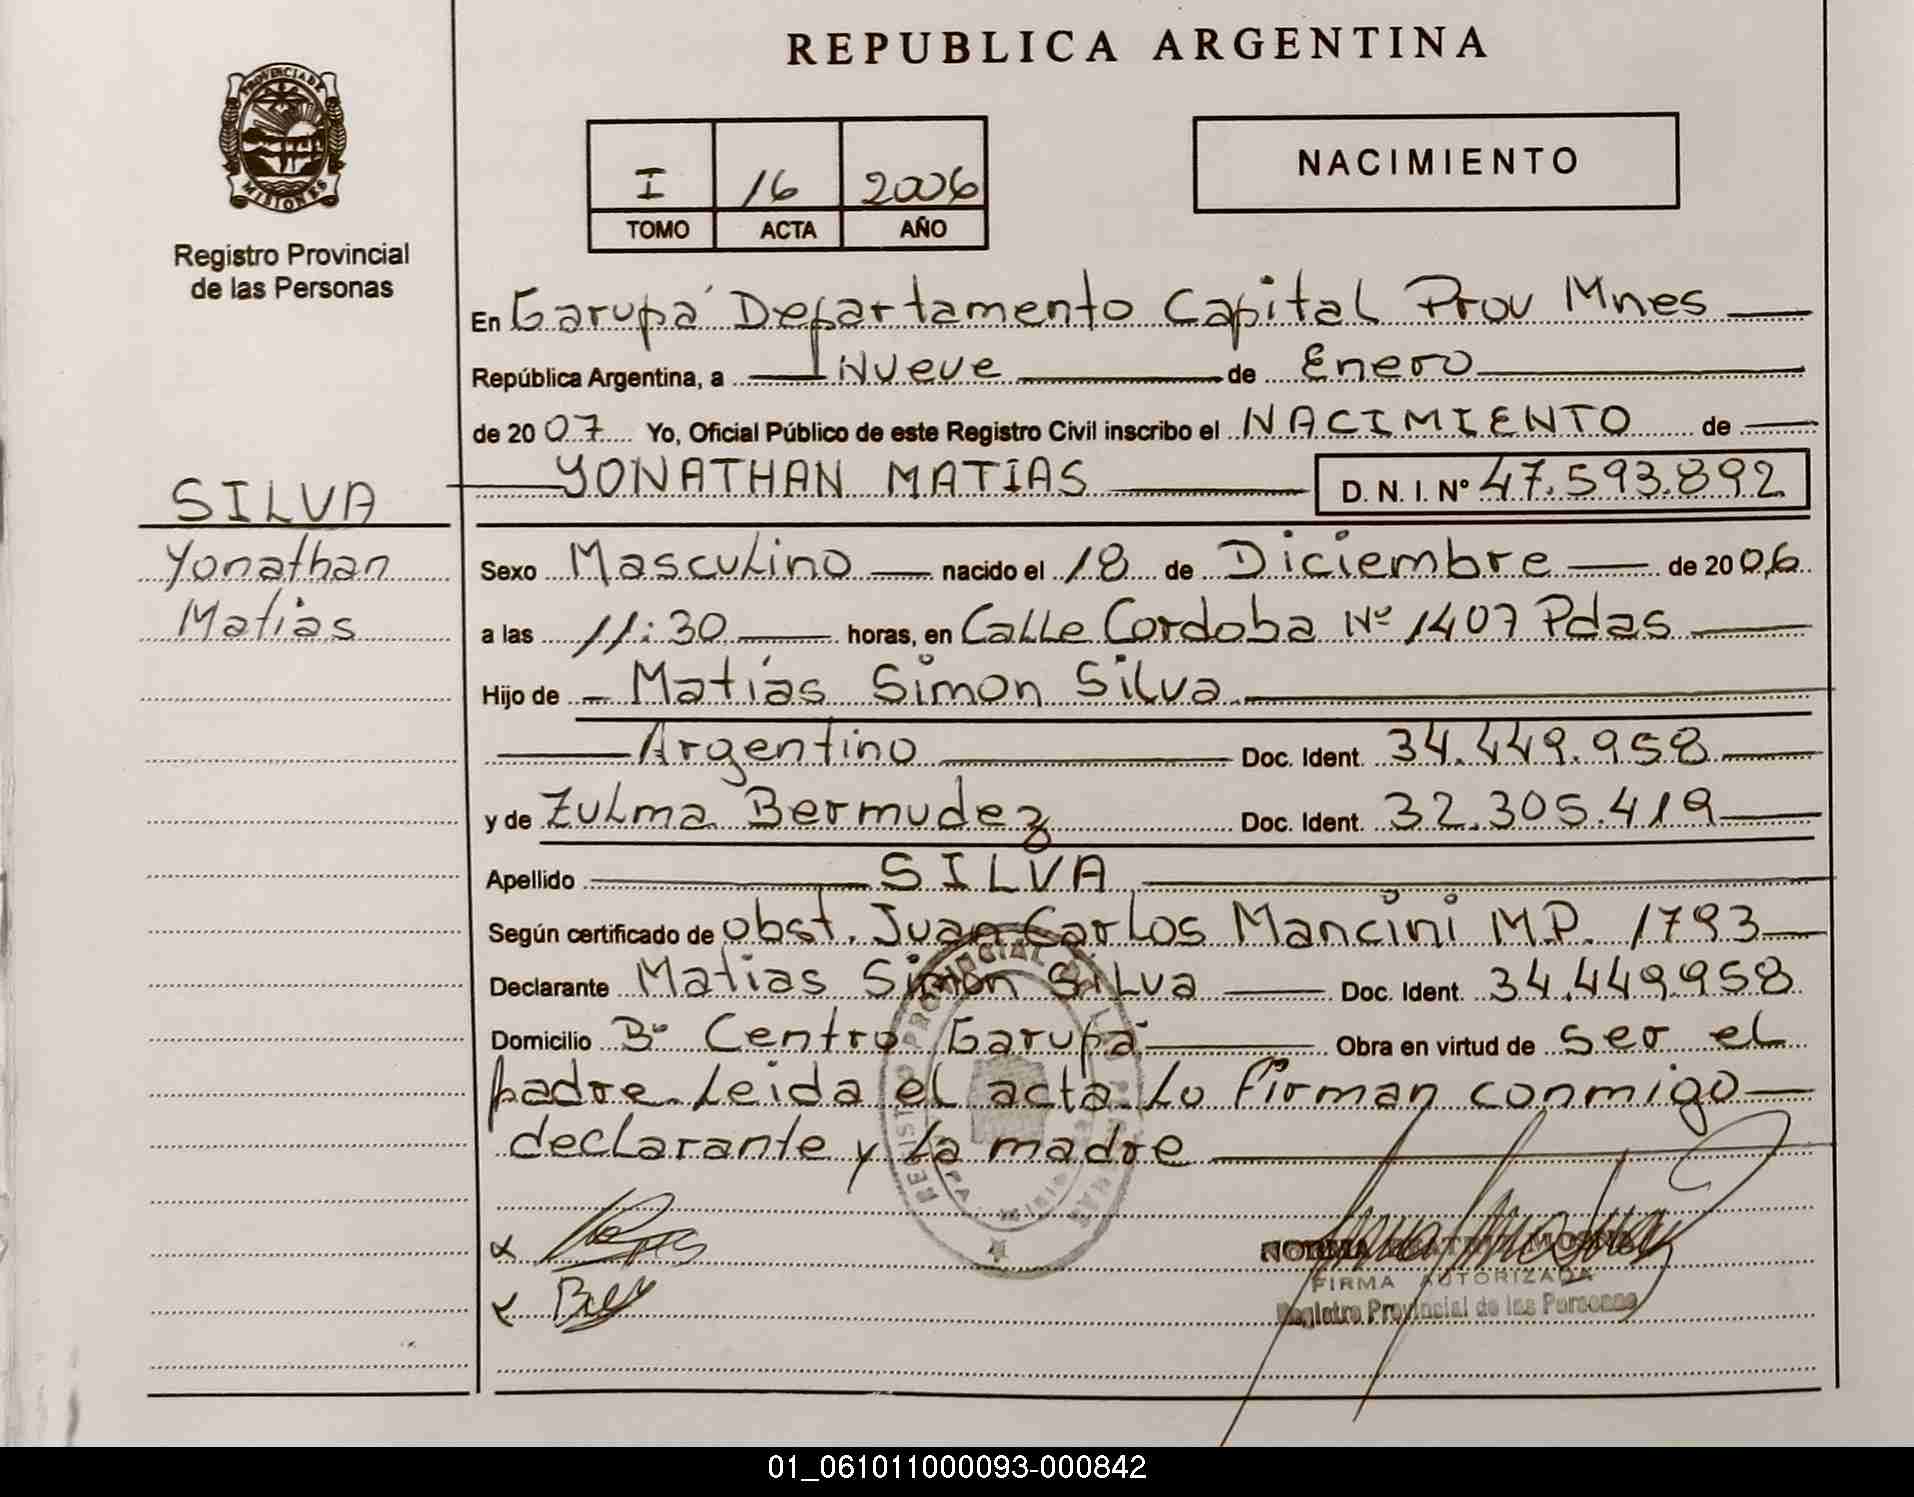 REPUBLICA ARGENTINA
PROVINCIA DE
MISIONES
Registro Provincial
de las Personas
I 16 2006
TOMO ACTA AÑO
NACIMIENTO
En Garupá Departamento Capital Prov Mnes
República Argentina, a Nueve de Enero
de 2007 Yo, Oficial Público de este Registro Civil inscribo el NACIMIENTO de
YONATHAN MATÍAS D. N. I. N° 47.593.892
SILVA
Yonathan
Matías
Sexo Masculino nacido el 18 de Diciembre de 2006
a las 11:30 horas, en Calle Cordoba Nº 1407 Pdas
Hijo de Matías Simon Silva
Argentino Doc. Ident. 34.449.958
y de Zulma Bermudez Doc. Ident. 32.305.419
Apellido SILVA
Según certificado de obst. Juan Carlos Mancini M.P. 1793
Declarante Matias Simon Silva Doc. Ident. 34.449.958
Domicilio Bº Centro Garupá Obra en virtud de ser el
padre. Leida el acta Lo firman conmigo
declarante y La madre
REGISTRO PROVINCIAL DE LAS PERSONAS
NORMA BEATRIZ
FIRMA AUTORIZADA
Registro Provincial de las Personas
01_061011000093-000842